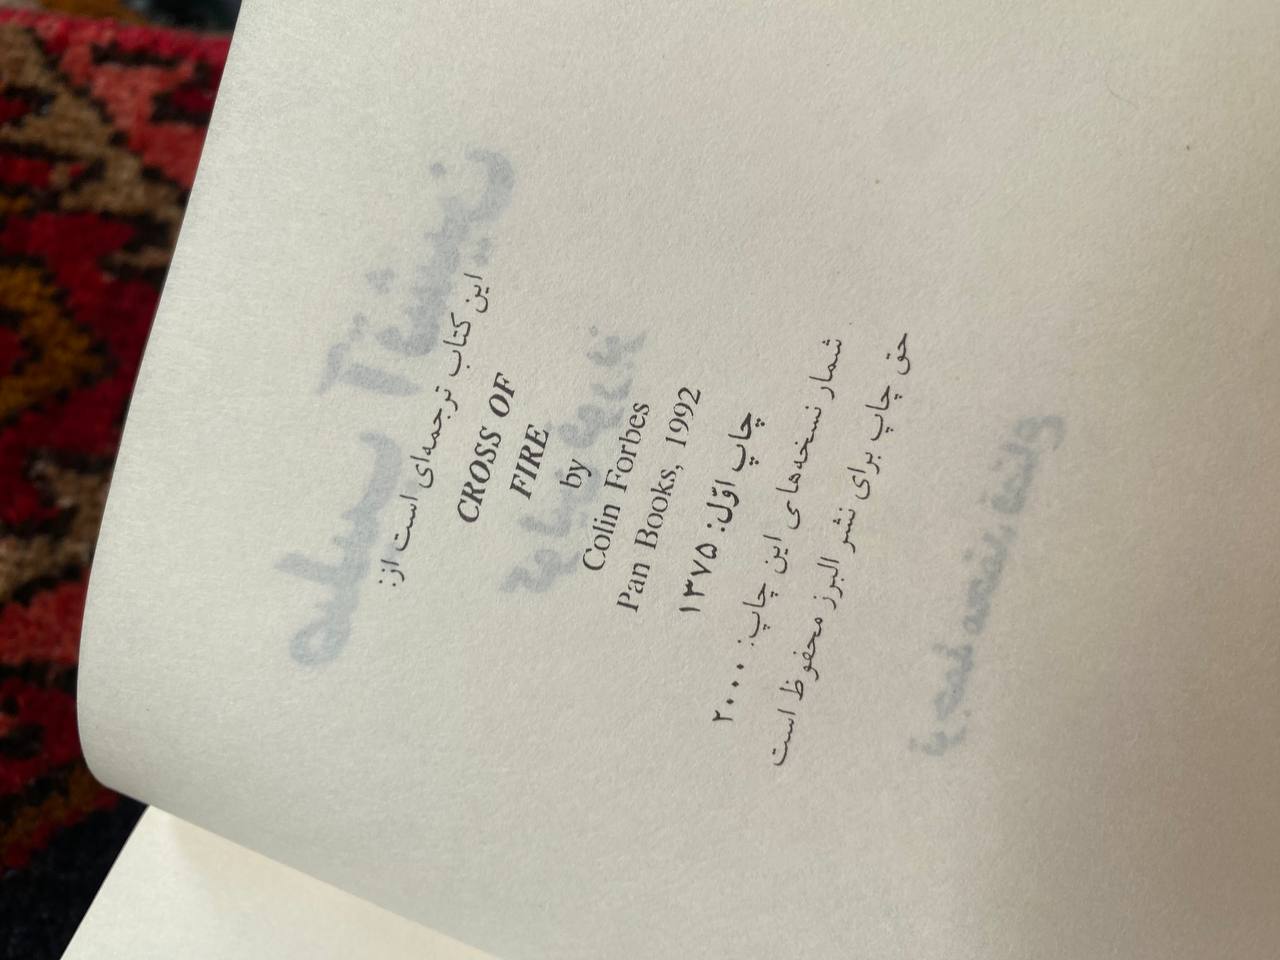 این کتاب ترجمه‌ای است از:
CROSS OF
FIRE
by
Colin Forbes
Pan Books, 1992
چاپ اوّل: ۱۳۷۵
شمار نسخه‌های این چاپ: ۲۰۰۰
حق چاپ برای نشر البرز محفوظ است